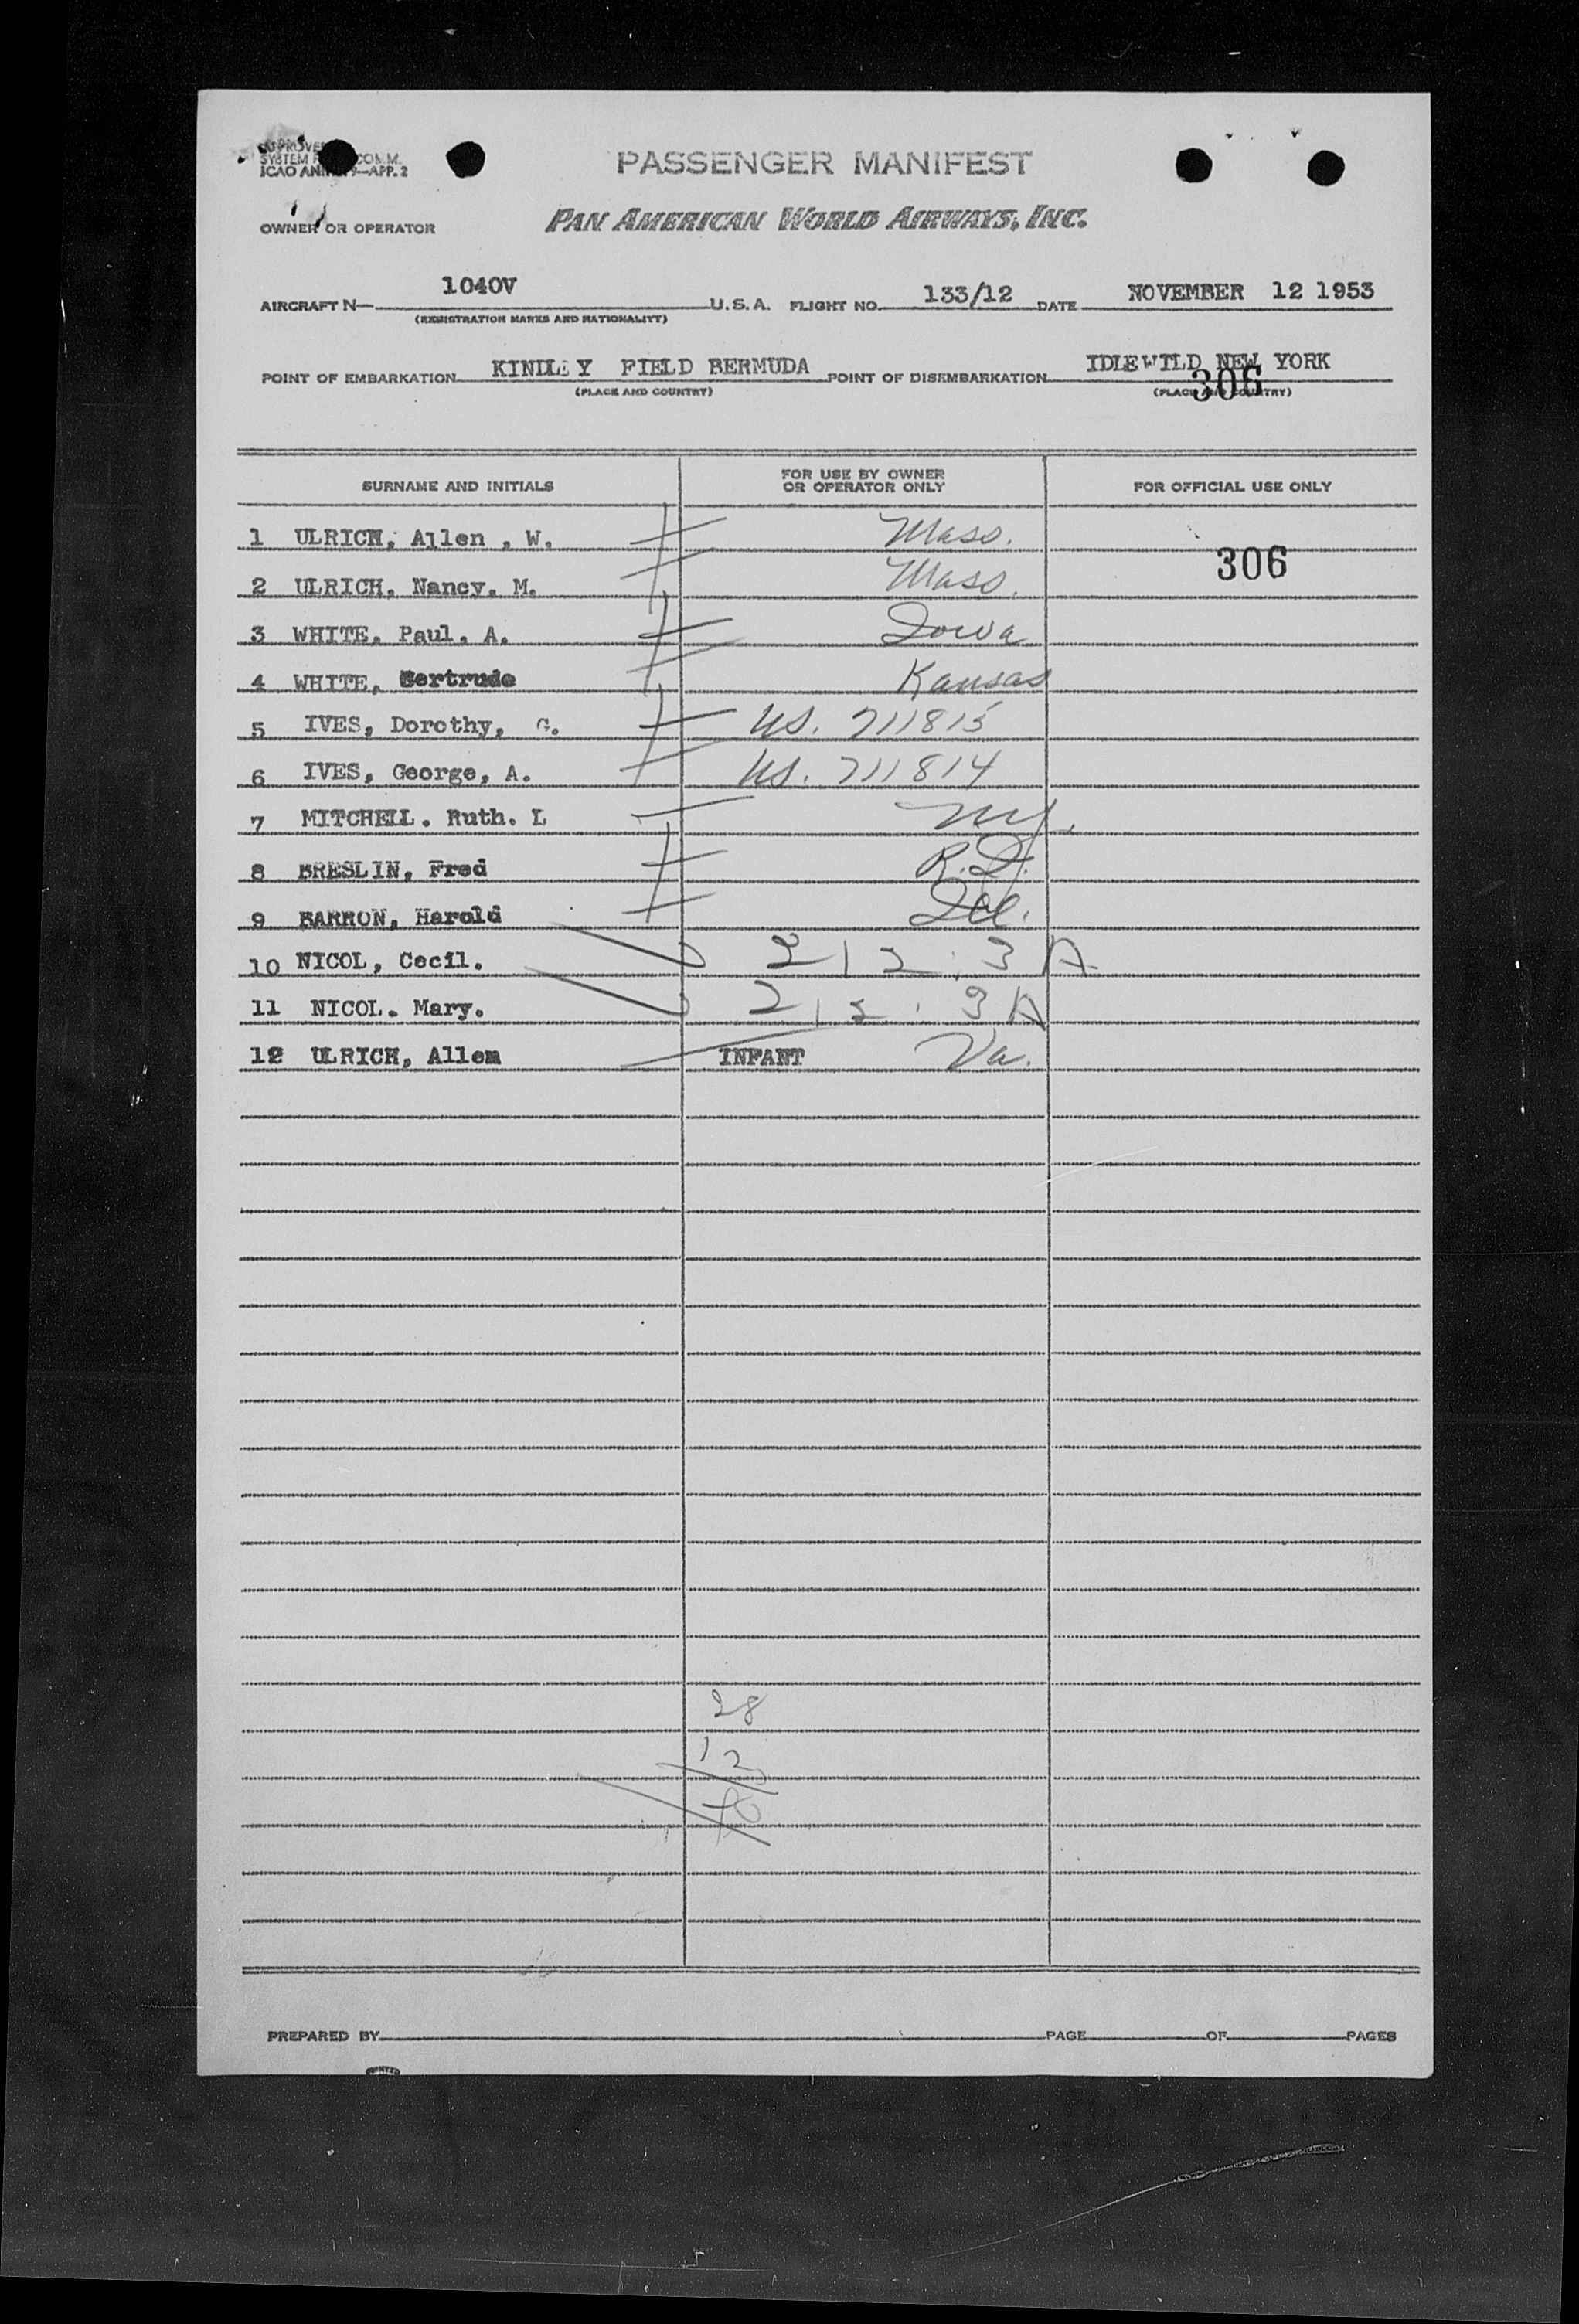 APPROVED
SYSTEM COMM.
ICAO ANNEX 9—APP. 2
PASSENGER MANIFEST
OWNER OR OPERATOR PAN AMERICAN WORLD AIRWAYS, INC.
AIRCRAFT N— 1040V U.S.A. FLIGHT NO. 133/12 DATE NOVEMBER 12 1953
(REGISTRATION MARKS AND NATIONALITY)
POINT OF EMBARKATION KINDLEY FIELD BERMUDA POINT OF DISEMBARKATION IDLEWILD NEW YORK
306
(PLACE AND COUNTRY) (PLACE AND COUNTRY)
SURNAME AND INITIALS FOR USE BY OWNER OR OPERATOR ONLY FOR OFFICIAL USE ONLY
1 ULRICH, Allen , W. Mass.
306
2 ULRICH. Nancy. M. Mass.
3 WHITE. Paul. A. Iowa
4 WHITE, Gertrude Kansas
5 IVES, Dorothy, G. US. 711815
6 IVES, George, A. US. 711814
7 MITCHELL. Ruth. L NY.
8 BRESLIN, Fred R.I.
9 BARRON, Harold Ill.
10 NICOL, Cecil. 212.3A
11 NICOL. Mary. 212.3A
12 ULRICH, Allen INFANT Va.
28
12
40
PREPARED BY PAGE OF PAGES